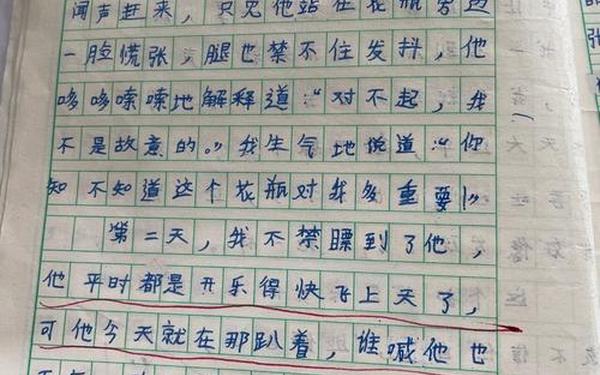 闻声赶来，只见他站在花瓶旁边
一脸慌张，腿也禁不住发抖，他
哆哆嗦嗦地解释道：“对不起，我
不是故意的。”我生气地说道：“你
知不知道这个花瓶对我多重要！”
第二天，我不禁瞟到了他，
他平时都是开乐得快飞上天了，
可他今天就在那趴着，谁喊他也